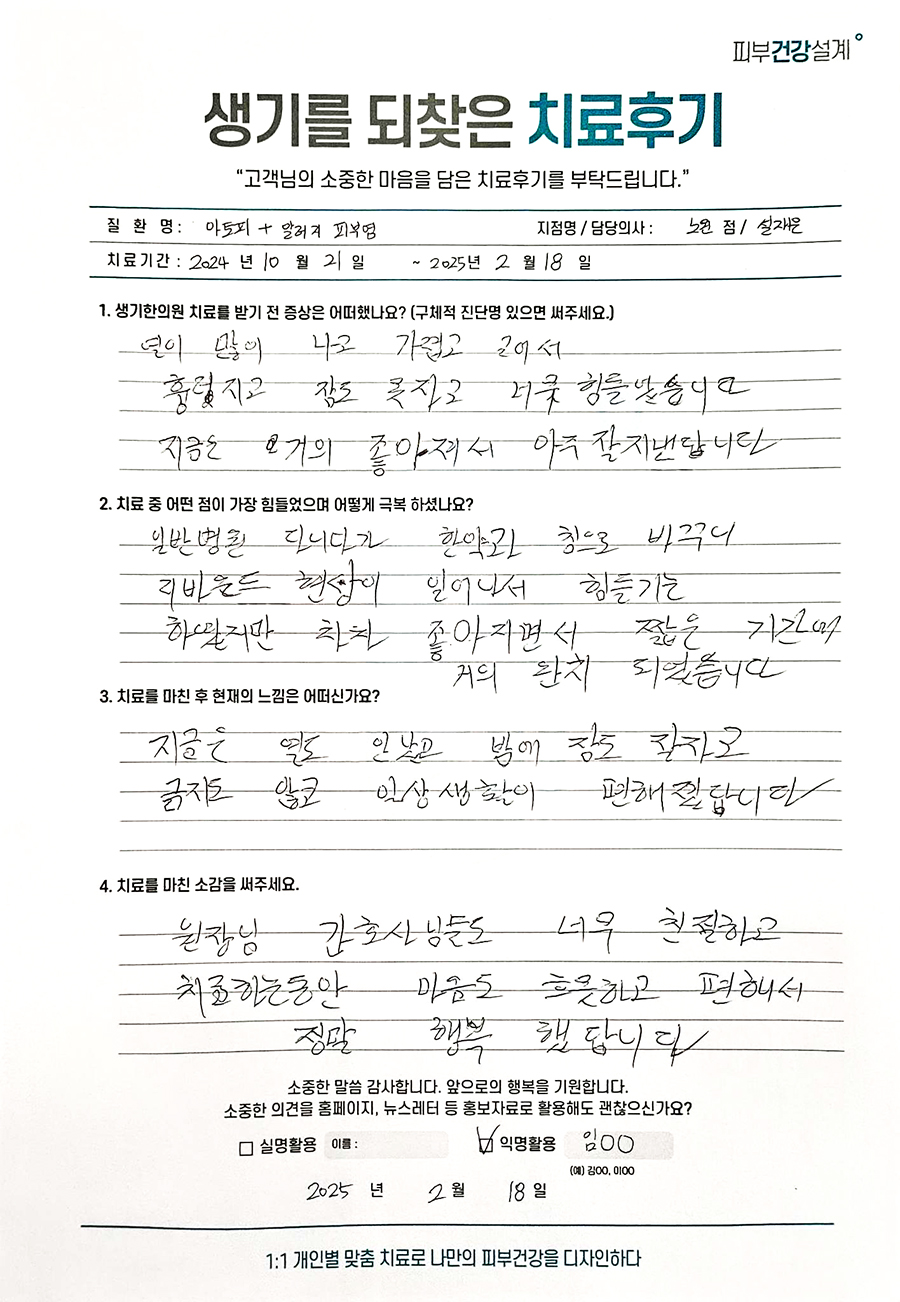 피부건강설계
생기를 되찾은 치료후기
“고객님의 소중한 마음을 담은 치료후기를 부탁드립니다.”
질 환 명 : 아토피 + 알러지 피부염 지점명 / 담당의사 : 노원 점 / 설재은
치료기간 : 2024 년 10 월 21 일 ~ 2025년 2 월 18 일
1. 생기한의원 치료를 받기 전 증상은 어떠했나요? (구체적 진단명 있으면 써주세요.)
열이 많이 나고 가렵고 긁어서
흉텃지고 잠도 못자고 너뭇 힘들었습니다
지금은 거의 좋아져서 아주 잘지낸답니다
2. 치료 중 어떤 점이 가장 힘들었으며 어떻게 극복 하셨나요?
일반병원 다니다가 한약과 침으로 바꾸니
리바운드 현상이 일어나서 힘들기는
하였지만 차차 좋아지면서 짧은 기간에
거의 완치 되었습니다
3. 치료를 마친 후 현재의 느낌은 어떠신가요?
지금은 열도 안났고 밤에 잠도 잘자고
긁지도 않고 일상생활이 편해졌답니다
4. 치료를 마친 소감을 써주세요.
원장님 간호사님들도 너무 친절하고
치료하는동안 마음도 흐믓하고 편해서
정말 행복 했답니다
소중한 말씀 감사합니다. 앞으로의 행복을 기원합니다.
소중한 의견을 홈페이지, 뉴스레터 등 홍보자료로 활용해도 괜찮으신가요?
실명활용 이름 : 익명활용 임OO
(예) 김OO, 이OO
2025 년 2 월 18 일
1:1 개인별 맞춤 치료로 나만의 피부건강을 디자인하다